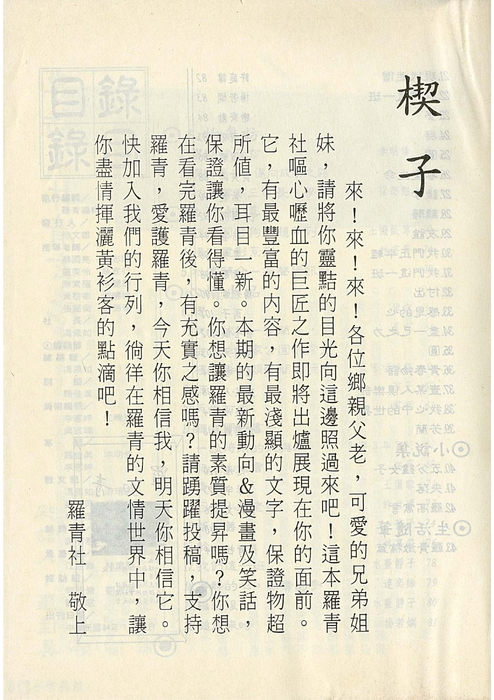 楔子
來！來！來！各位鄉親父老，可愛的兄弟姐
妹，請將你靈黠的目光向這邊照過來吧！這本羅青
社嘔心瀝血的巨匠之作即將出爐展現在你的面前。
它，有最豐富的內容，有最淺顯的文字，保證物超
所值，耳目一新。本期的最新動向&漫畫及笑話，
保證讓你看得懂。你想讓羅青的素質提昇嗎？你想
在看完羅青後，有充實之感嗎？請踴躍投稿，支持
羅青，愛護羅青，今天你相信我，明天你相信它。
快加入我們的行列，徜徉在羅青的文情世界中，讓
你盡情揮灑黃衫客的點滴吧！
羅青社　敬上